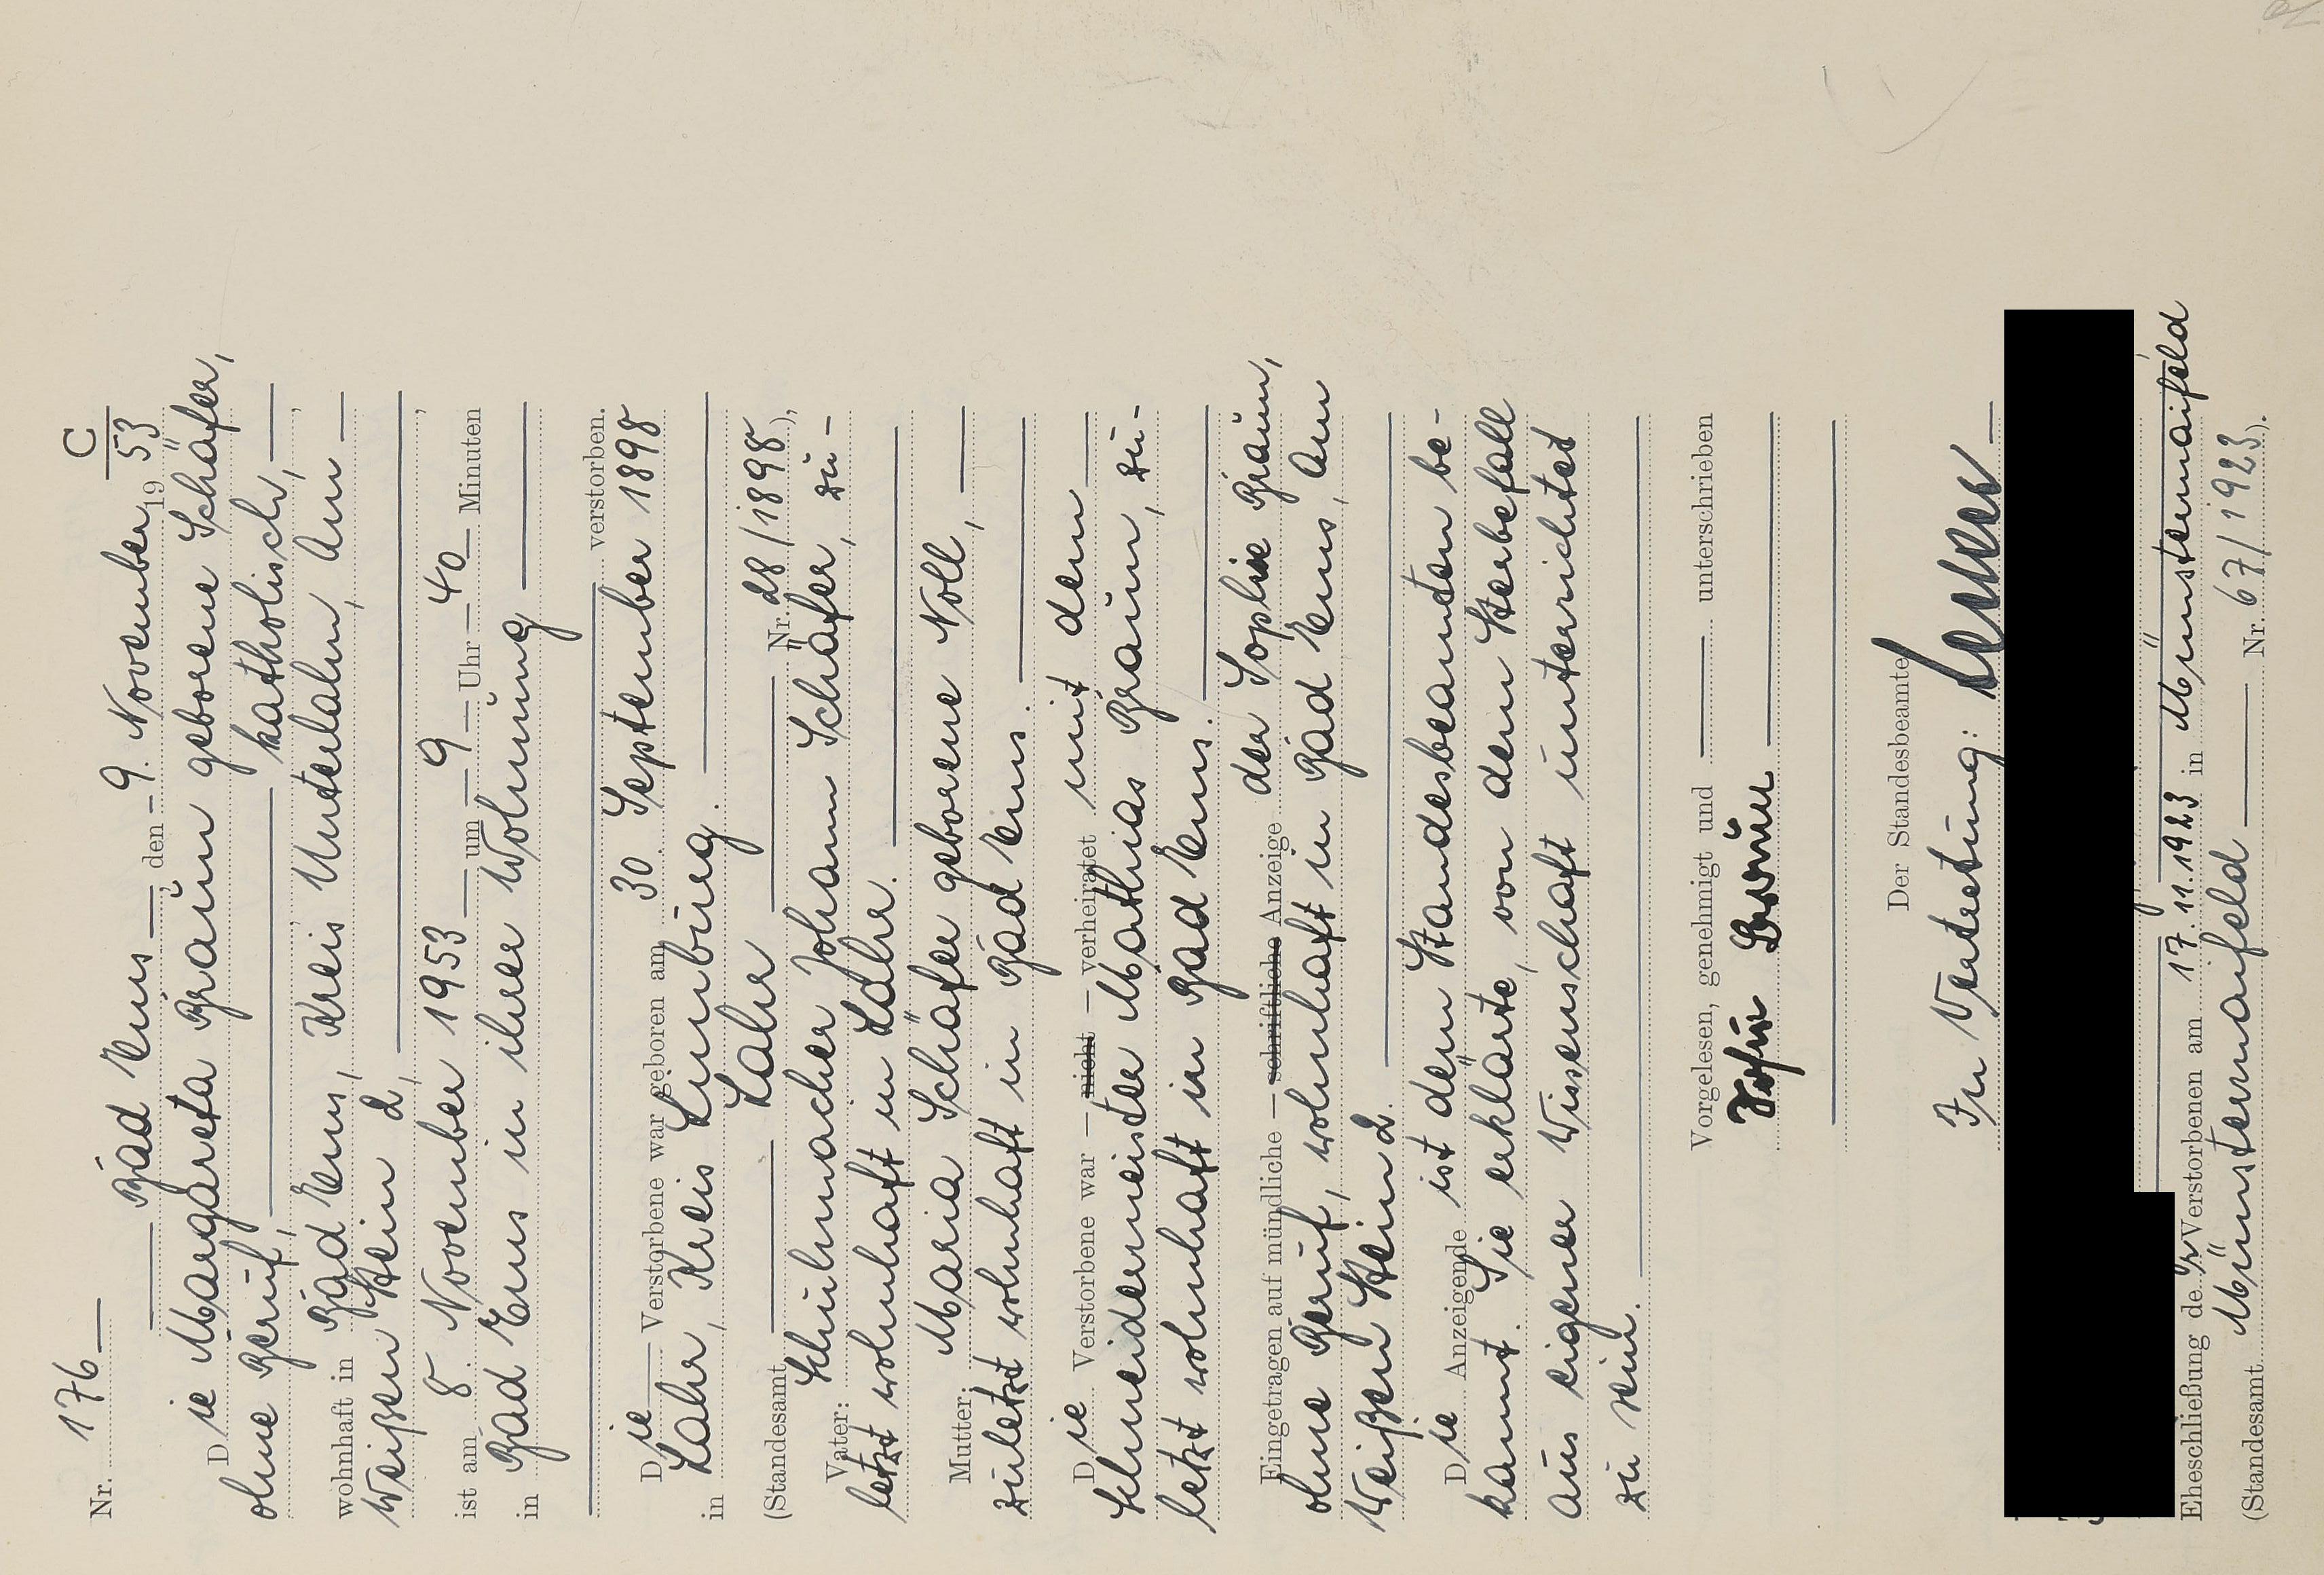 C
Nr. 176
Bad Ems den 9. November 1953
Die Margareta Braun geborene Schäfer,
ohne Beruf, katholisch,
wohnhaft in Bad Ems, Kreis Unterlahn, Am
Weißen Stein 2,
ist am 8. November 1953 um 9 Uhr 40 Minuten
in Bad Ems in ihrer Wohnung
verstorben.
Die Verstorbene war geboren am 30. September 1898
in Lahr, Kreis Limburg.
(Standesamt Lahr Nr. 28/1898),
Vater: Schuhmacher Johann Schäfer, zu-
letzt wohnhaft in Lahr.
Mutter: Maria Schäfer geborene Noll,
zuletzt wohnhaft in Bad Ems.
Die Verstorbene war — nicht — verheiratet mit dem
Schneidermeister Mathias Braun, zu-
letzt wohnhaft in Bad Ems.
Eingetragen auf mündliche — schriftliche Anzeige der Sophie Braun,
ohne Beruf, wohnhaft in Bad Ems, Am
Weißen Stein 2.
Die Anzeigende ist dem Standesbeamten be-
kannt. Sie erklärte, von dem Sterbefall
aus eigener Wissenschaft unterrichtet
zu sein.
Vorgelesen, genehmigt und unterschrieben
Sofie Braun
Der Standesbeamte
In Vertretung:
Eheschließung der Verstorbenen am 17.11.1923 in Münstermaifeld
(Standesamt Münstermaifeld Nr. 67/1923).